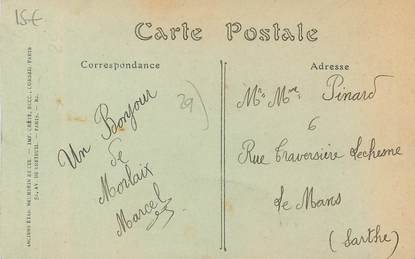 15€
Carte Postale
Correspondance
Adresse
29)
Un Bonjour
de
Morlaix
Marcel
Mr Mme Pinard
6
Rue Traversière Lechesne
Le Mans
(Sarthe)